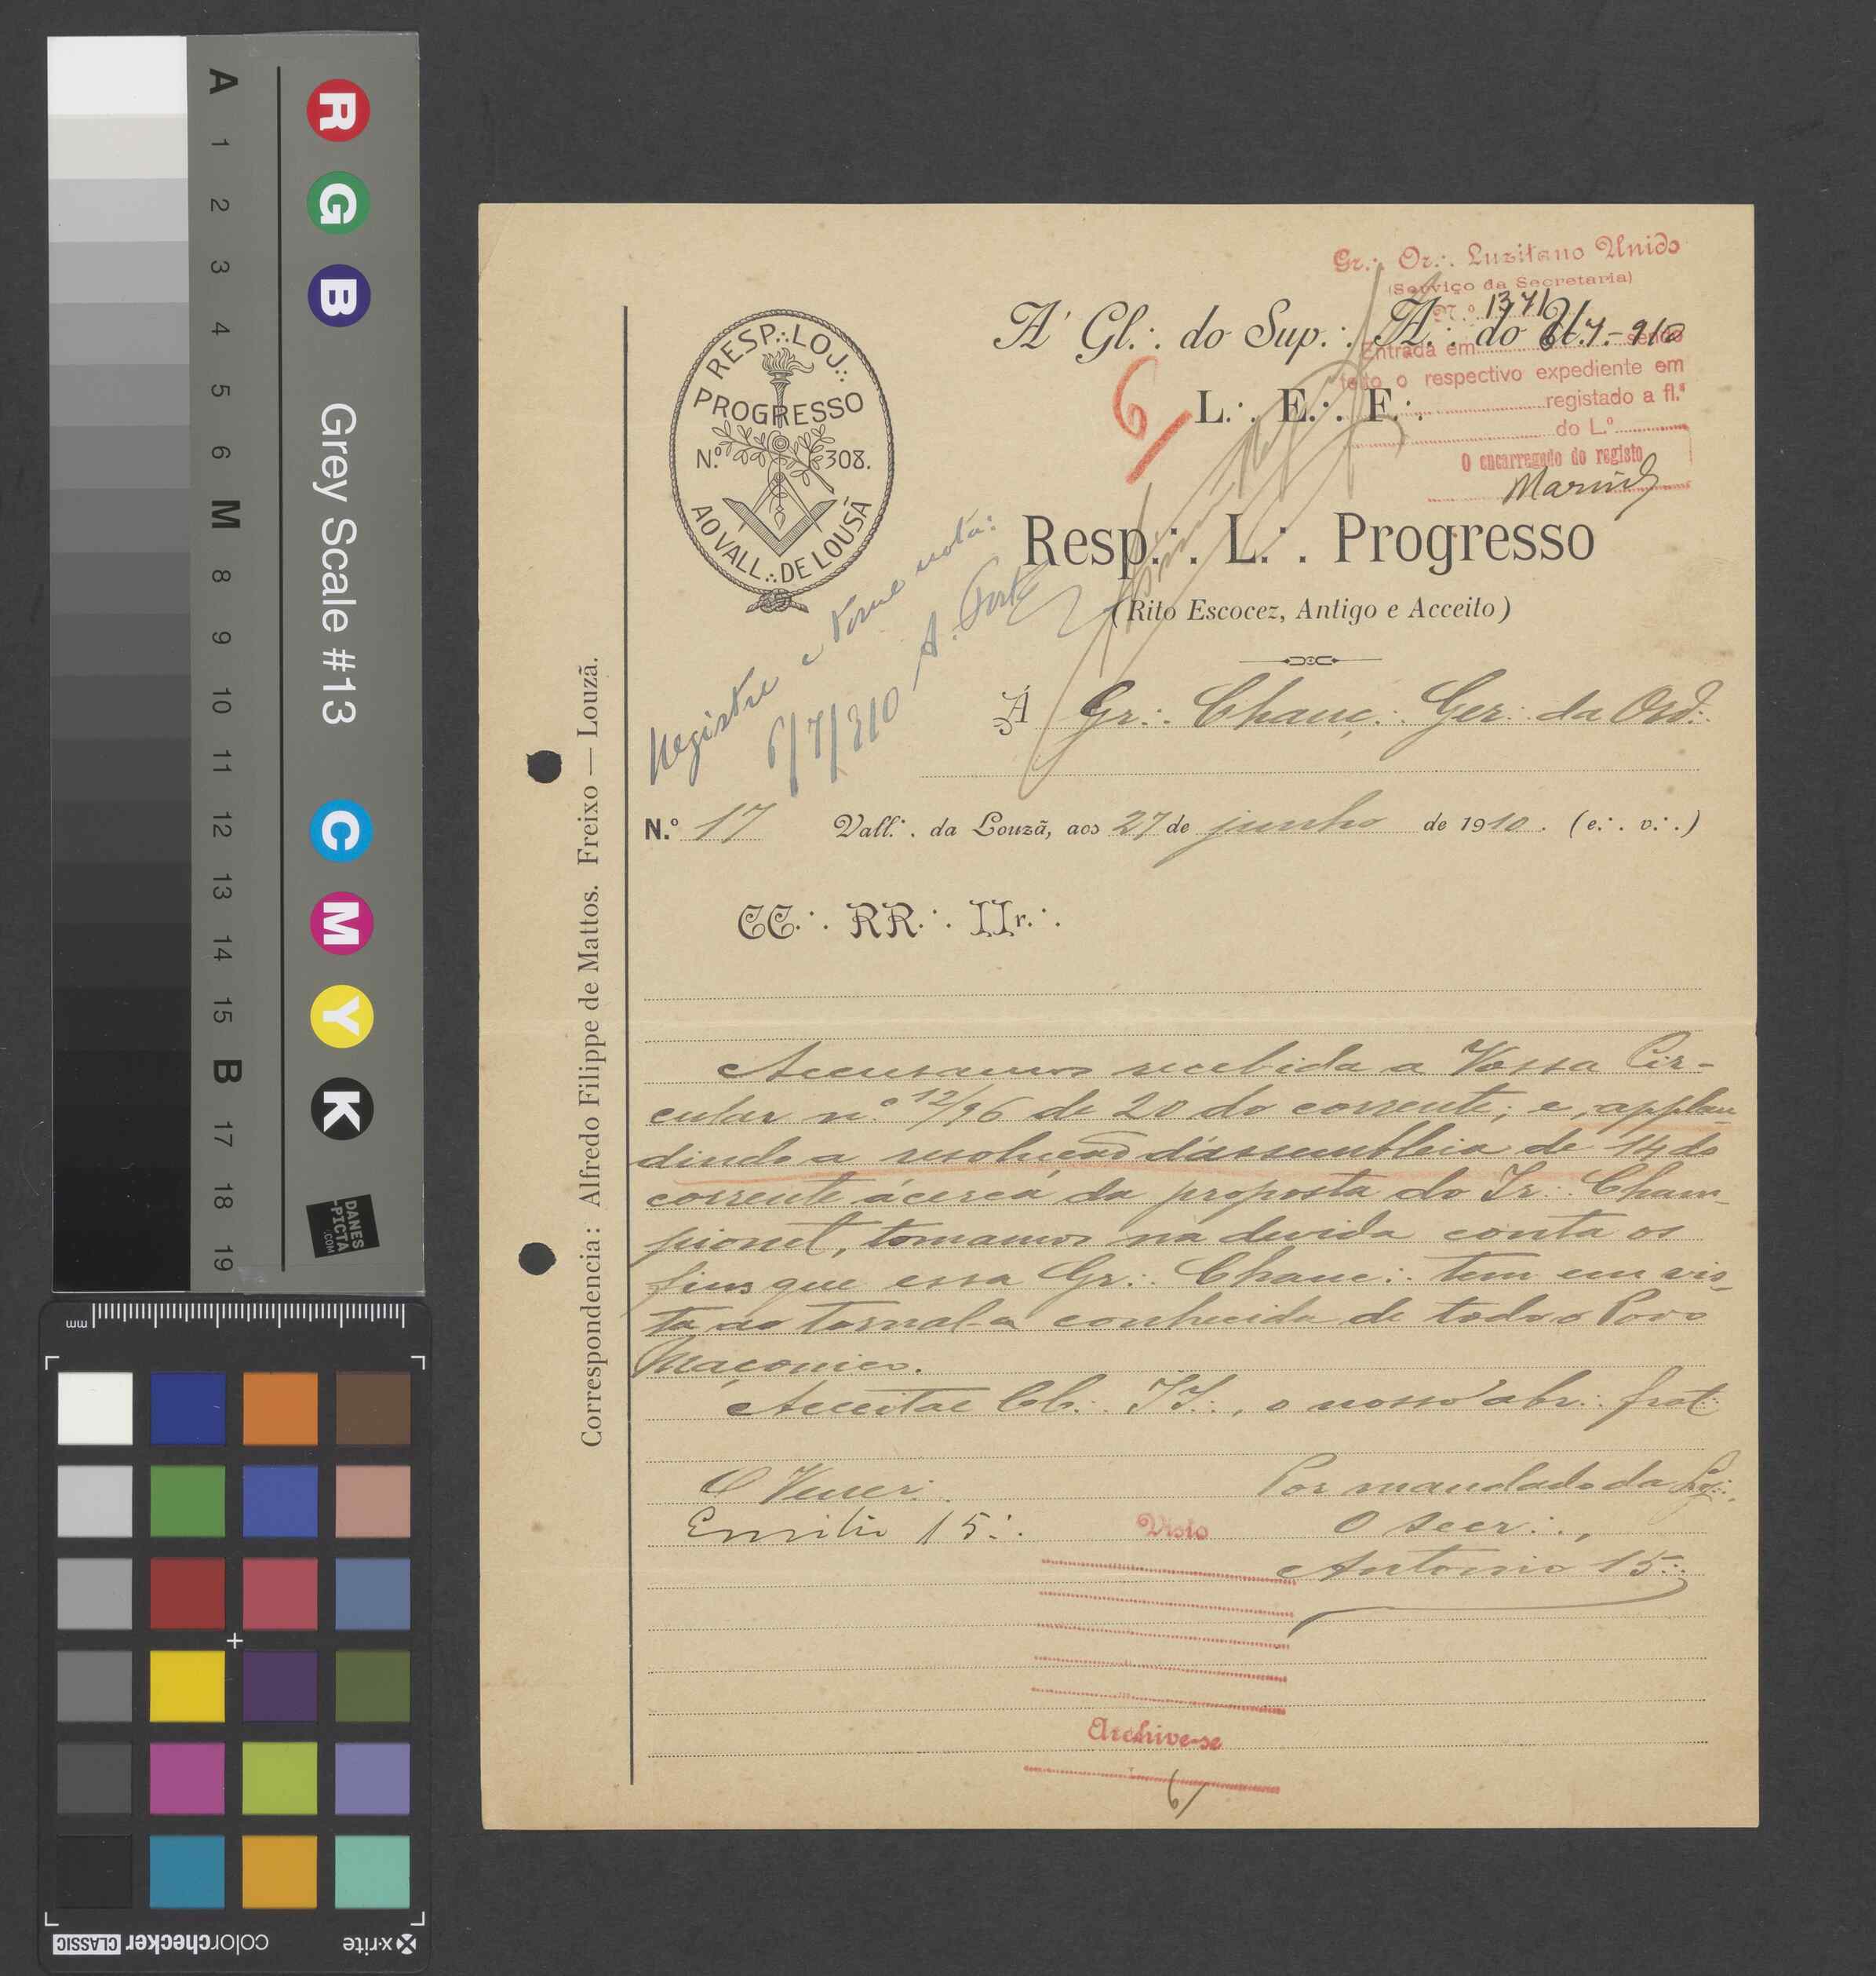 A
1
2
3
4
5
6
M
8
9
10
11
12
13
14
15
B
17
18
19
Grey Scale #13
R
G
B
C
M
Y
K
DANES
-PICTA
.COM
mm
colorchecker CLASSIC
x-rite
Gr∴ Or∴ Luzitano Unido
(Serviço da Secretaria)
N.º 1371
Entrada em 6-7-910 sendo
feito o respectivo expediente em
registado a fl.ª
do L.º
O encarregado do registo
RESP∴ LOJ∴
PROGRESSO
N.º 308.
AO VALL∴ DE LOUSÃ
A' Gl∴ do Sup∴ A∴ do U∴
L∴ E∴ F∴
6
Resp∴ L∴ Progresso
(Rito Escocez, Antigo e Acceito)
Registre e tome nota:
6/7/910
Á Gr∴ Chanc∴ Ger∴ da Ord∴
N.º 17 Vall∴ da Louzã, aos 27 de junho de 1910. (e∴ v∴)
CC∴ RR∴ IIr∴
Accusamos recebida a Vossa Cir-
cular n.º 12/96 de 20 do corrente; e, applau-
dindo a resolução d'assembleia de 14 do
corrente ácerca da proposta do Ir∴ Cham-
pionet, tomamos na devida conta os
fins que essa Gr∴ Chanc∴ tem em vis-
ta ao tornal-a conhecida de todo o Povo
Maçonico.
Acceitae CC∴ II∴, o nosso abr∴ frat∴
O Vener∴
Emilio 15∴
Por mandado da Loj∴
O Secr∴,
Antonio 15∴
Visto
Archive-se
Correspondencia: Alfredo Filippe de Mattos. Freixo — Louzã.